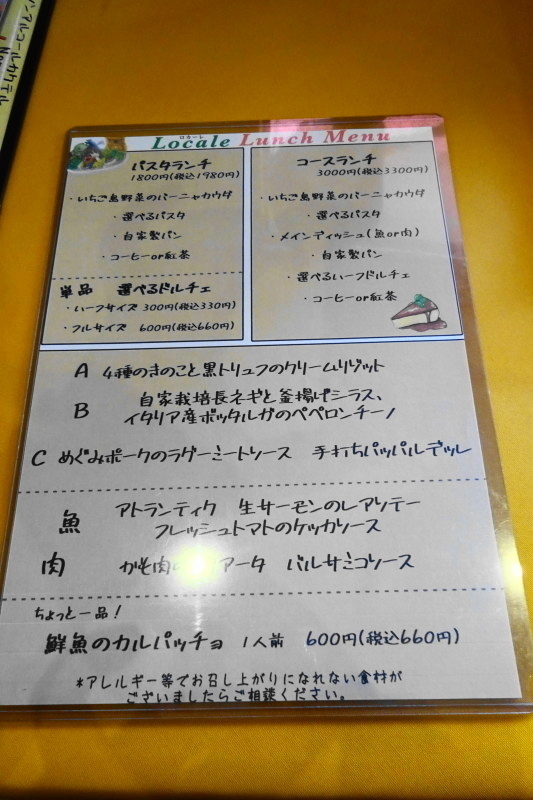 ノンアルコールカクテル
ロカーレ
Locale Lunch Menu
パスタランチ
1800円(税込1980円)
・いちご島野菜のバーニャカウダ
・選べるパスタ
・自家製パン
・コーヒーor紅茶
単品 選べるドルチェ
・いーフサイズ 300円(税込330円)
・フルサイズ 600円(税込660円)
コースランチ
3000円(税込3300円)
・いちご島野菜のバーニャカウダ
・選べるパスタ
・メインディッシュ(魚or肉)
・自家製パン
・選べるいーフドルチェ
・コーヒーor紅茶
A 4種のきのこと黒トリュフのクリームリゾット
B 自家栽培長ネギと釜揚げシラス、
イタリア産ボッタルガのペペロンチーノ
C めぐみポークのラグーミートソース 手打ちパッパルデッレ
魚 アトランティク 生サーモンのレアソテー
フレッシュトマトのケッカソース
肉 かも肉の アータ バルサミコソース
ちょっと一品!
鮮魚のカルパッチョ 1人前 600円(税込660円)
*アレルギー等でお召し上がりになれない食材が
ございましたらご相談ください。